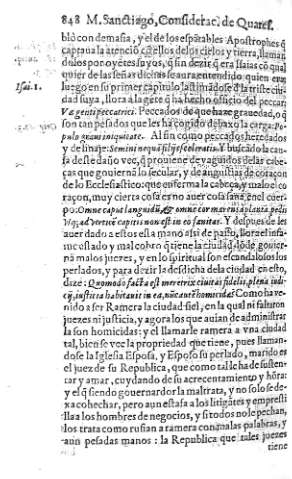 848 M. Sanctiago, Considerac. de Quares.
blò con demasia, y el de los espãtables Apostrophes q̃
captaua la atenciõ cõ ellos de los cielos y tierra, llaman
dolos por oyẽtes suyos, q̃ sin dezir q̃ era Isaias cõ qual
quier de las señas dichas se aura entendido quien era;
Isai. 1.
luego en su primer capitulo lastimãdose d̃ la triste ciu-
dad suya, llora a la gẽte q̃ ha hecho officio del peccar:
Væ genti peccatrici. Peccados de que haze grauedad, q̃
son tan pesados que les ha cogido debaxo la carga: Po-
pulo graui iniquitate. Al fin como peccados heredados
y de linaje: Semini nequã filijs sceleratis. Y buscãdo la cau-
sa deste daño vee, q̃ prouiene de vaguidos de las cabe-
ças que gouiernã lo secular, y de angustias de coraçon
de lo Ecclesiastico: que enferma la cabeça, y malo el co
raçon, muy cierta cosa es no auer cosa sana en el cuer-
po: Omne caput languidũ, & omne cor mærens, à planta pedis
vsq; ad verticẽ capitis non est in eo sanitas. Y despues de les
auer dado a estos esta mano assi de passo, llora el infa-
me estado y mal cobro q̃ tiene la ciudad dõde gouier-
nã malos juezes, y en lo spiritual son escandalosos los
perlados, y para dezir la desdicha de la ciudad en esto,
dize: Quomodo facta est meretrix ciuitas fidelis, plena iudi-
cij, iustitia habitauit in ea, nũc autẽ homicidæ? Como ha ve-
nido a ser Ramera la ciudad fiel, en la qual ni faltaron
juezes ni justicia, y agora los que auian de administrar
la son homicidas: y el llamarle ramera a vna ciudad
tal, bien se vee la propriedad que tiene, pues llaman-
dose la Iglesia Esposa, y Esposo su perlado, marido es
el juez de su Republica, que como tal le ha de susten-
tar y amar, cuydando de su acrecentamiento y hõra:
y el q̃ siendo gouernador la maltrata, y no solo se de-
xa cohechar, pero aun estafa a los litigãtes y empresti
lla a los hombres de negocios, y si todos no le pechan,
los trata como rufian a ramera con malas palabras, y
aun pesadas manos: la Republica que tales juezes
tiene